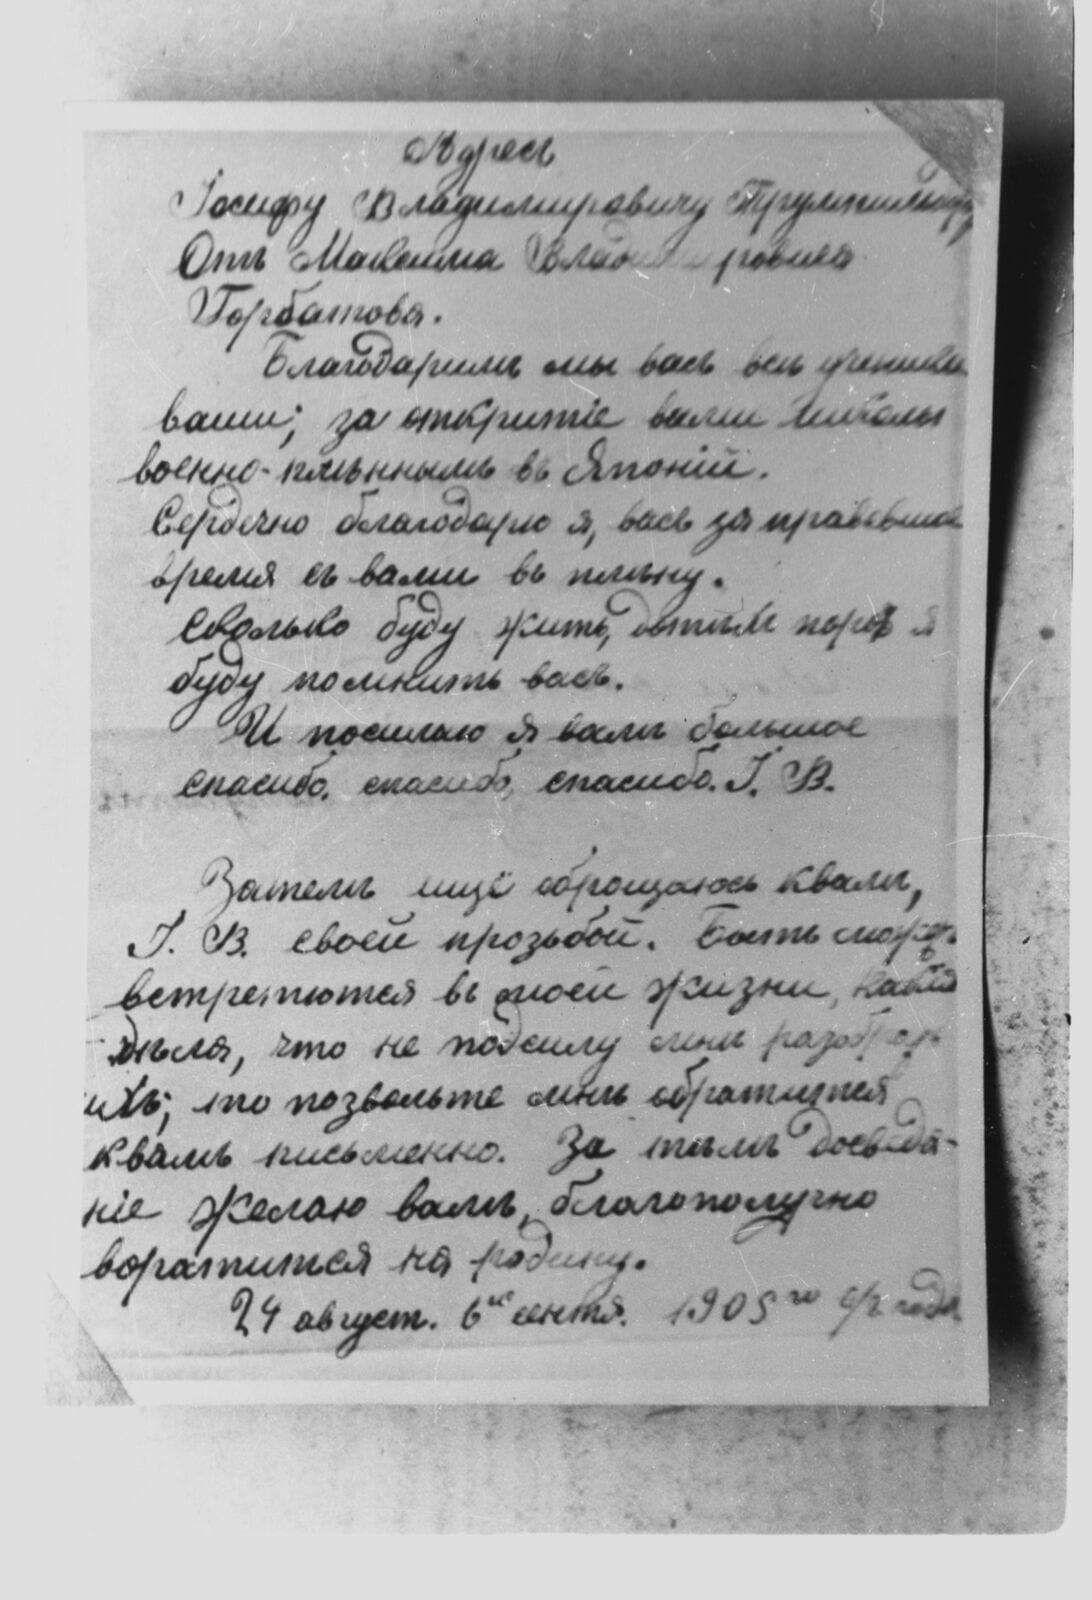 Адресъ
Іосифу Владимировичу Трумпельдору
Отъ Максима Владимировича
Горбатова.
Благодаримъ мы васъ всѣ ученики
ваши; за открытіе вами школы
военно-плѣннымъ въ Японіи.
Сердечно благодарю я, васъ за
время съ вами въ плѣну.
Сколько буду жить, я
буду помнить васъ.
И посылаю я вамъ большое
спасибо, спасибо, спасибо. І. В.
Затемъ ищё оброщаюсь квамъ,
І. В. своей прозьбой. Быть може
встретются въ моей жизни,
дѣла, что не подсилу мнѣ
ихъ; то позвольте мнѣ обратится
квамъ письменно. За тѣмъ досвида-
ніе желаю вамъ, благополучно
воратиться на родину.
24 август. 6го сентя. 1905 го года